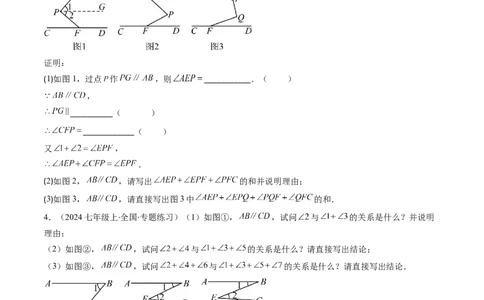 P 1 2 G P Q
C F D C F D C F D
图1 图2 图3
证明：
(1)如图1，过点P作PG∥AB，则∠AEP=____________．（　　）
∵AB∥CD，
∴PG∥__________（　　）
∴∠CFP=____________（　　）
又∠1+∠2=∠EPF，
∴∠AEP+∠CFP=∠EPF．
(2)如图2，AB∥CD，请写出∠AEP+∠EPF+∠PFC的和并说明理由；
(3)如图3，AB∥CD，请直接写出图3中∠AEP+∠EPQ+∠PQF+∠QFC的和．
4．（2024七年级上·全国·专题练习）（1）如图①，AB∥CD，试问∠2与∠1+∠3的关系是什么？并说明
理由；
（2）如图②，AB∥CD，试问∠2+∠4与∠1+∠3+∠5的关系是什么？请直接写出结论；
（3）如图③，AB∥CD，试问∠2+∠4+∠6与∠1+∠3+∠5+∠7的关系是什么？请直接写出结论．
A 1 B A 1 B A 1 B
E 2 E 2